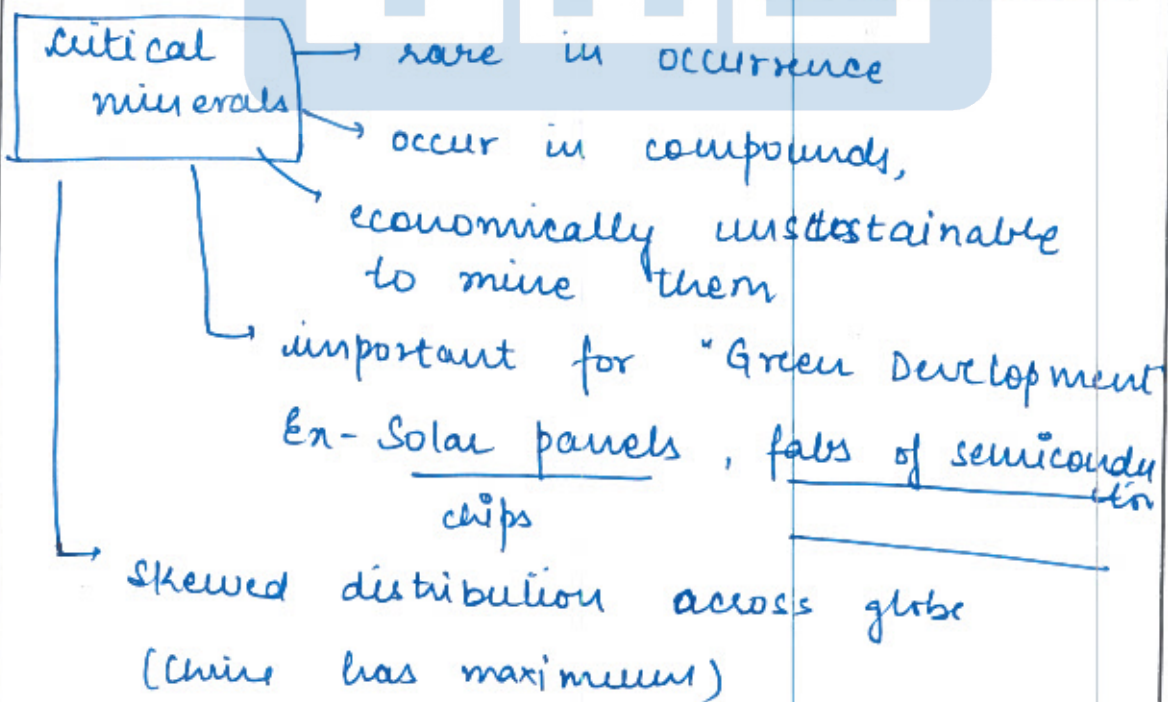 critical
minerals
→ rare in occurrence
→ occur in compounds,
→ economically unsustainable
to mine them
→ important for "Green Development
Ex- Solar panels, fabs of semicondu
ctor
chips
→ skewed distribution across globe
(China has maximum)